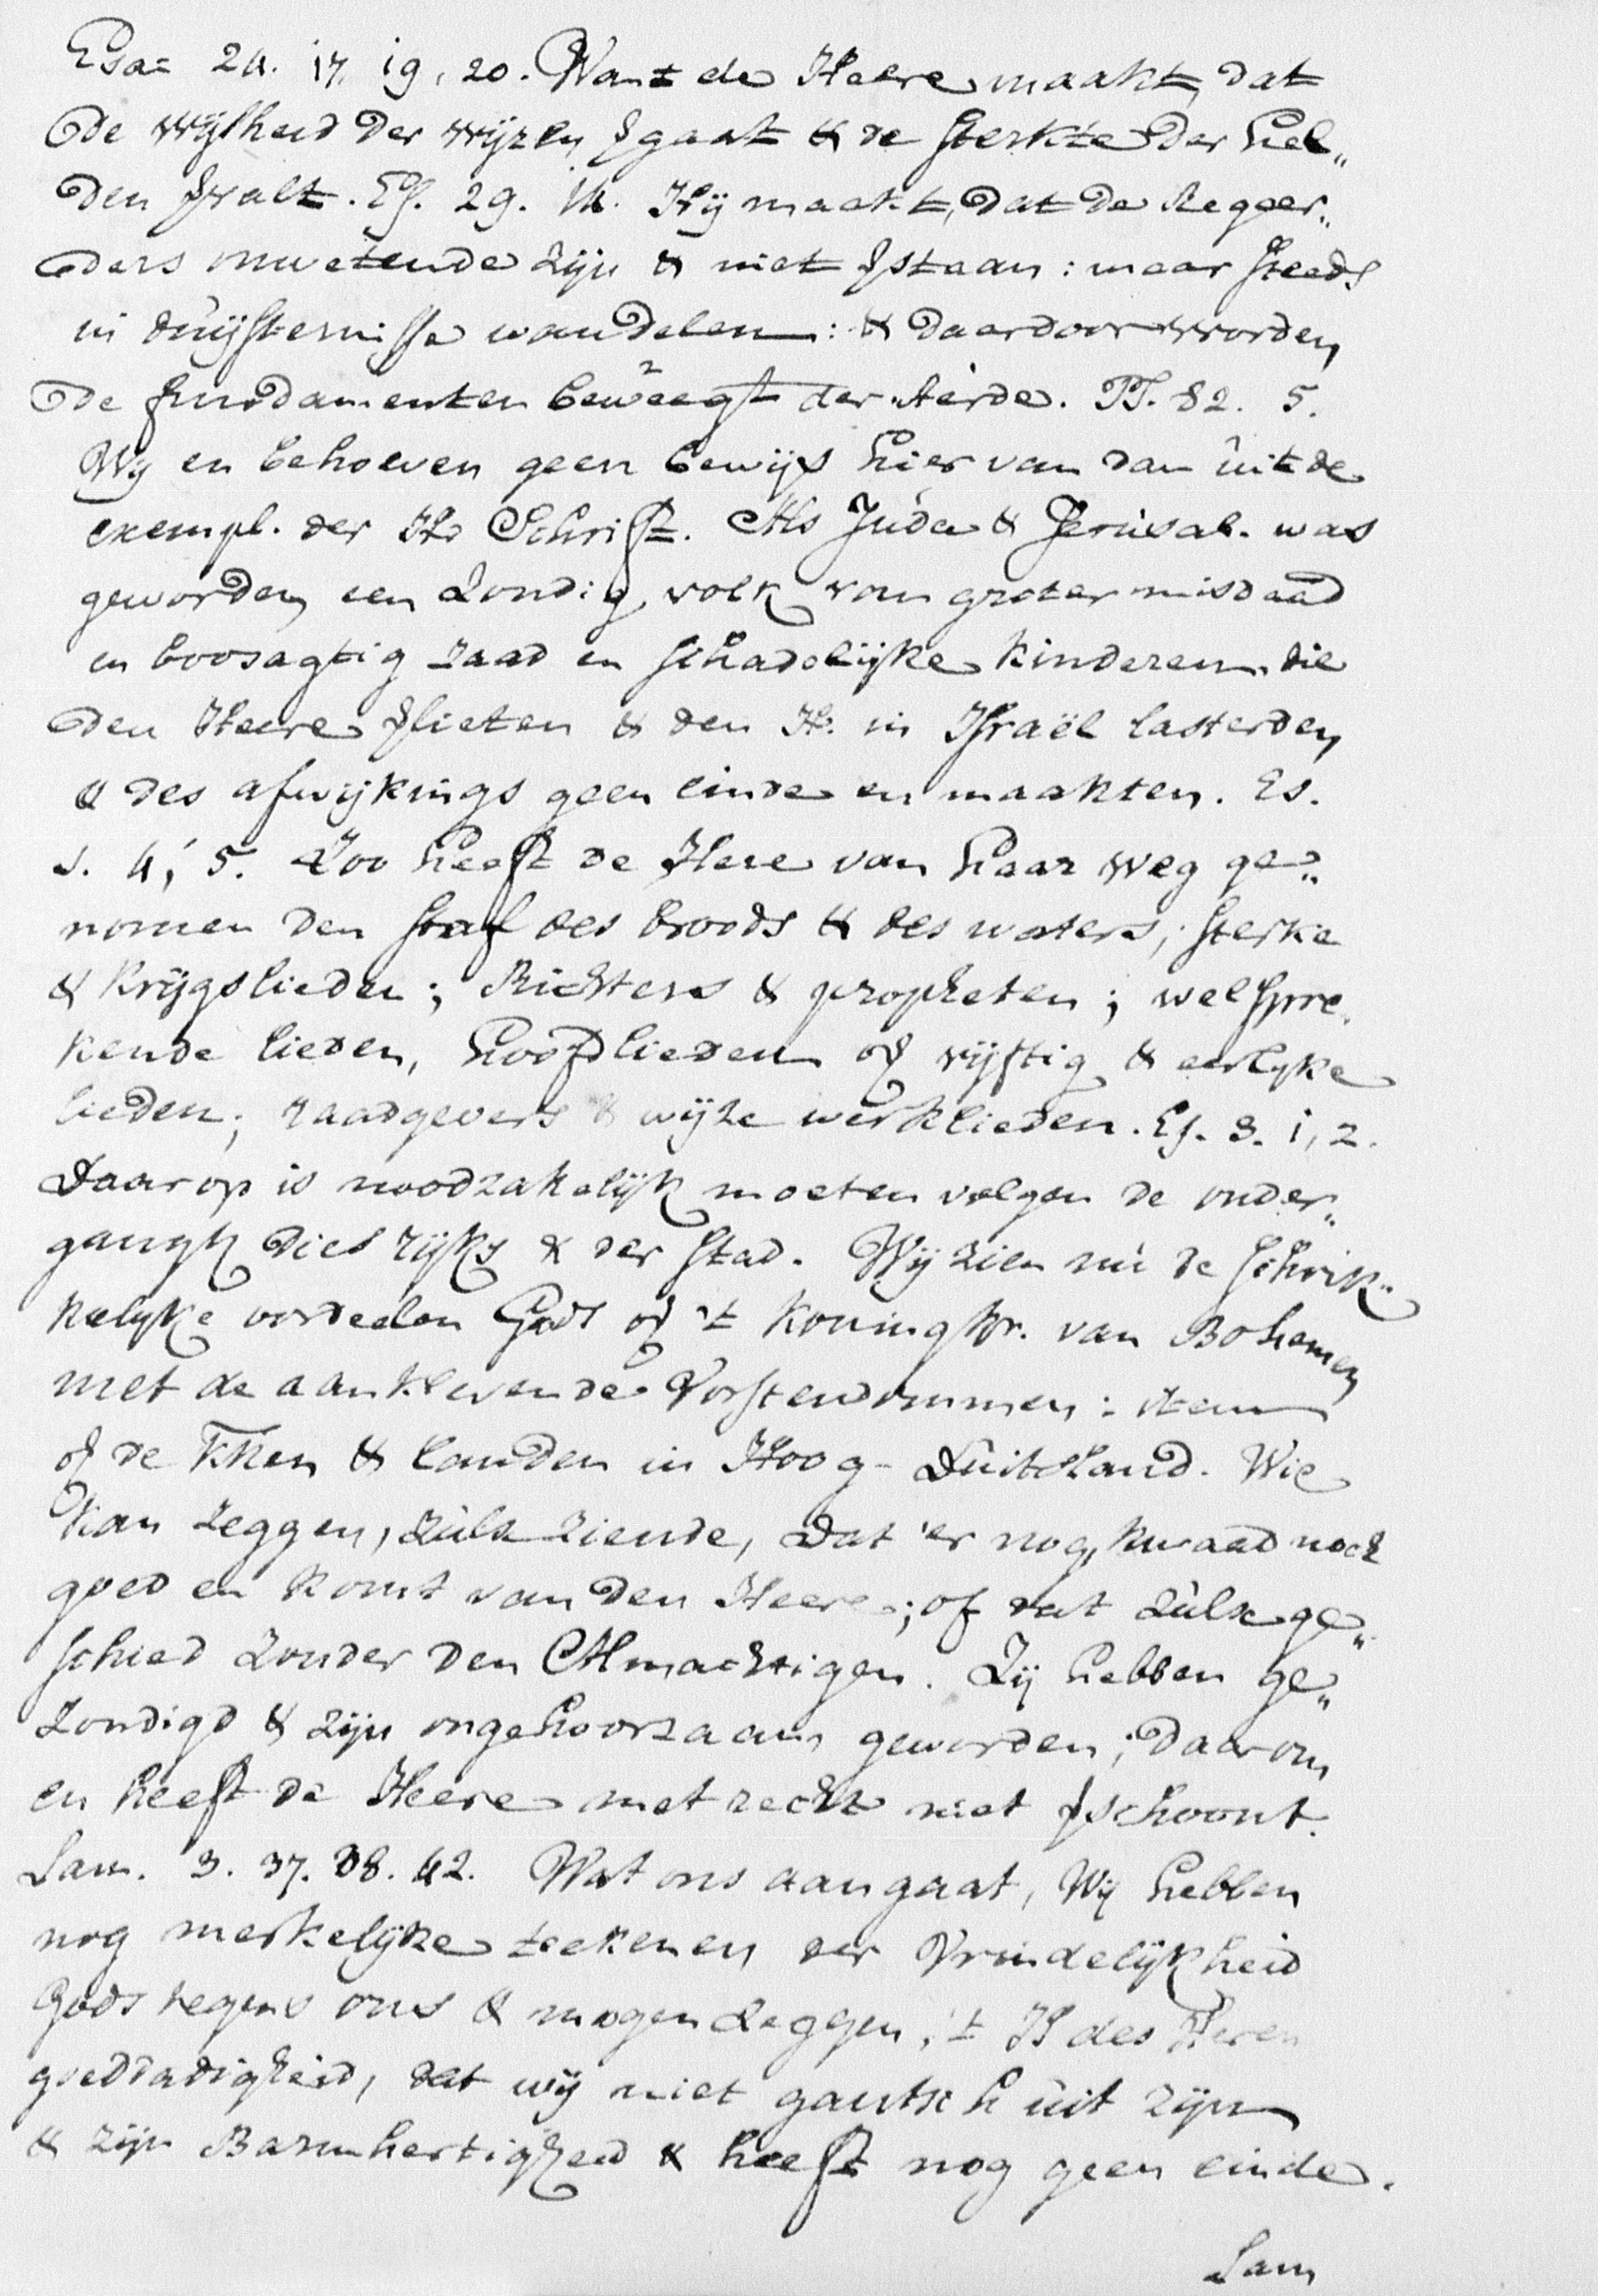 Esa= 24. 17. 19, 20. Want de Heere maakt, dat
de wijsheid der wijzen ꝟgaat & de sterkte der hel„
den ꝟvalt. Es. 29. 14. Hij maakt, dat de Regeer„
ders onwetende zijn & niet ꝟstaan: maar steeds
in duijsternisse wandelen: & daardoor worden
de fundamenten beweegt der Aerde. Ps. 82. 5.
Wij en behoeven geen bewijs hier van dan uit de
exempl. der H. Schrift. Als Juda & Jerusal. was
geworden een zondig volk van groter misdaad
en boosagtig zaad en schadelijke kinderen die
den Heere ꝟlieten & den H: in Israël lasterden
& des afwijkings geen einde en maakten. Es.
1. 4, 5. Zoo heeft de Here van haar weg ge„
nomen den staf des broods & des waters; sterke
& krijgslieden; Richters & propheten; welspre„
kende lieden, hoofdlieden of vijftig & eerlyke
lieden; raadgevers & wijze werklieden. Es. 3. 1, 2.
Daar op is noodzakelijk moeten volgen de onder„
gangh dies rijks & der stad. Wij zien nu de schrik„
kelyke oordeelen Gods of 't koningkr. van Bohemen
met de aanklevende Vorstendommen: item
of de KKen & landen in Hoog-Duitsland. Wie
kan zeggen, zulx ziende, dat 'er nog kwaad noch
goed en komt van den Heere; of dat zulx ge„
schied zonder den Almachtigen. Zij hebben ge„
zondigd & zijn ongehoorzaam geworden; daarom
en heeft de Heere met recht niet ꝟschoont.
Lam. 3. 37. 38. 42. Wat ons aangaat, Wij hebben
nog merkelijke teekenen der Vrindelijkheid
Gods tegens ons & mogen zeggen, 't Is des Heren
goeddadigheid, dat wij niet gantsch uit zijn
& zijn Barmhertigheid & heeft nog geen einde.
Lam